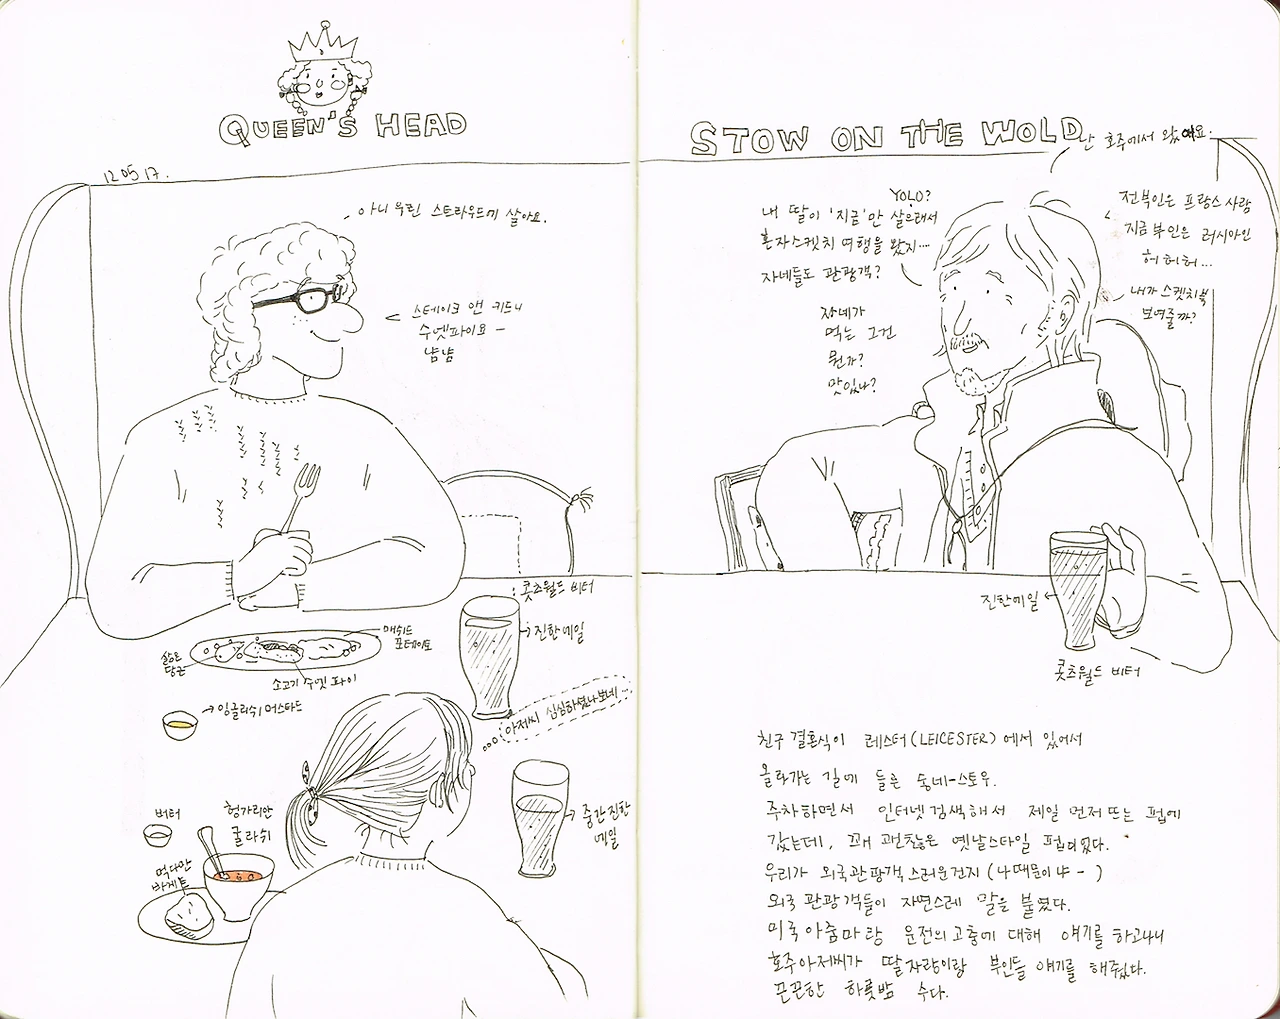 QUEEN'S HEAD
12 05 17.
아니 우린 스트라우드에 살아요.
스테이크 앤 키드니
수엣파이요-
냠냠
: 콧츠월드 비터
진한에일
매쉬드
포테이토
삶은
당근
소고기 수엣 파이
잉글리쉬 머스타드
아저씨 심심하셨나보네...
버터
헝가리안
굴라쉬
먹다만
바게트
중간진한
에일
STOW ON THE WOLD
난 호주에서 왔어요.
YOLO?
내 딸이 '지금'만 살으래서
혼자스켓치 여행을 왔지....
자네들도 관광객?
전부인은 프랑스 사람
지금부인은 러시아인
허 허허...
내가 스켓치북
보여줄까?
자네가
먹는 그건
뭔가?
맛있나?
진한에일
콧츠월드 비터
친구 결혼식이 레스터(LEICESTER)에서 있어서
올라가는 길에 들른 동네-스토우.
주차하면서 인터넷검색해서 제일 먼저 뜨는 펍에
갔는데, 꽤 괜찮은 옛날스타일 펍이었다.
우리가 외국관광객스러운건지 (나때문이냐-)
외국 관광객들이 자연스레 말을 붙였다.
미국 아줌마랑 운전의 고충에 대해 얘기를 하고나니
호주아저씨가 딸자랑이랑 부인들 얘기를 해줬다.
끈끈한 하룻밤 수다.